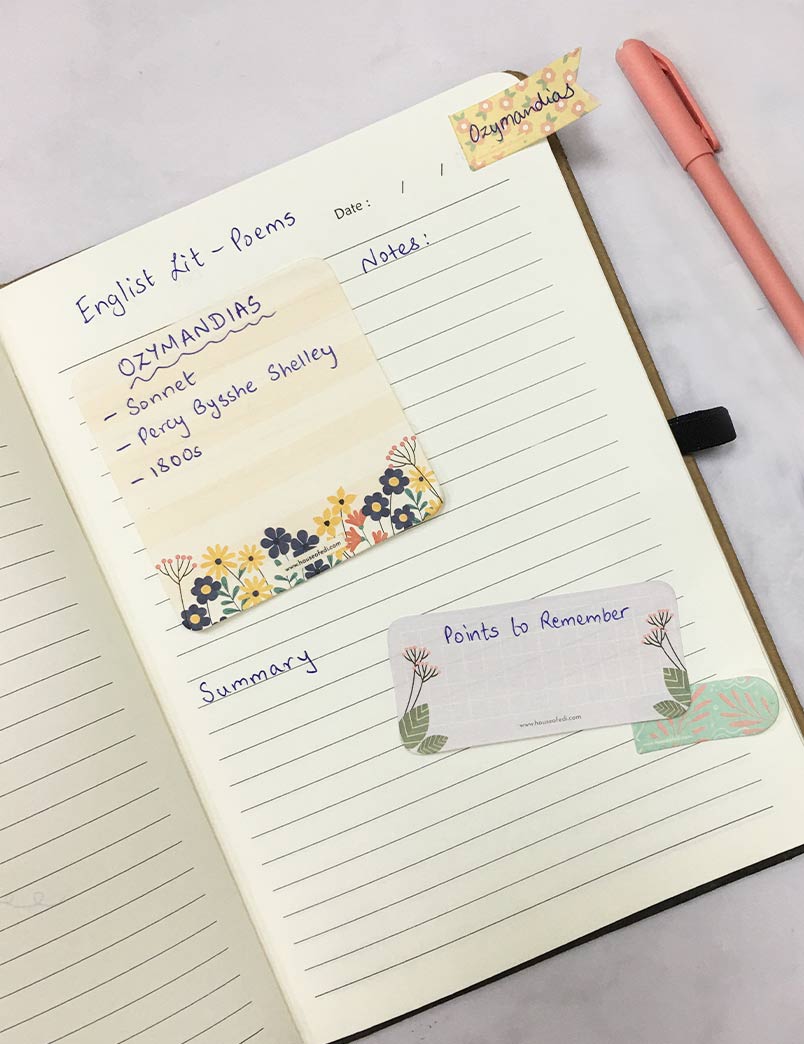 Ozymandias
Date : / /
Englist Lit - Poems
Notes:
OZYMANDIAS
- Sonnet
- Percy Bysshe Shelley
- 1800s
www.houseofedi.com
Points to Remember
www.houseofedi.com
Summary